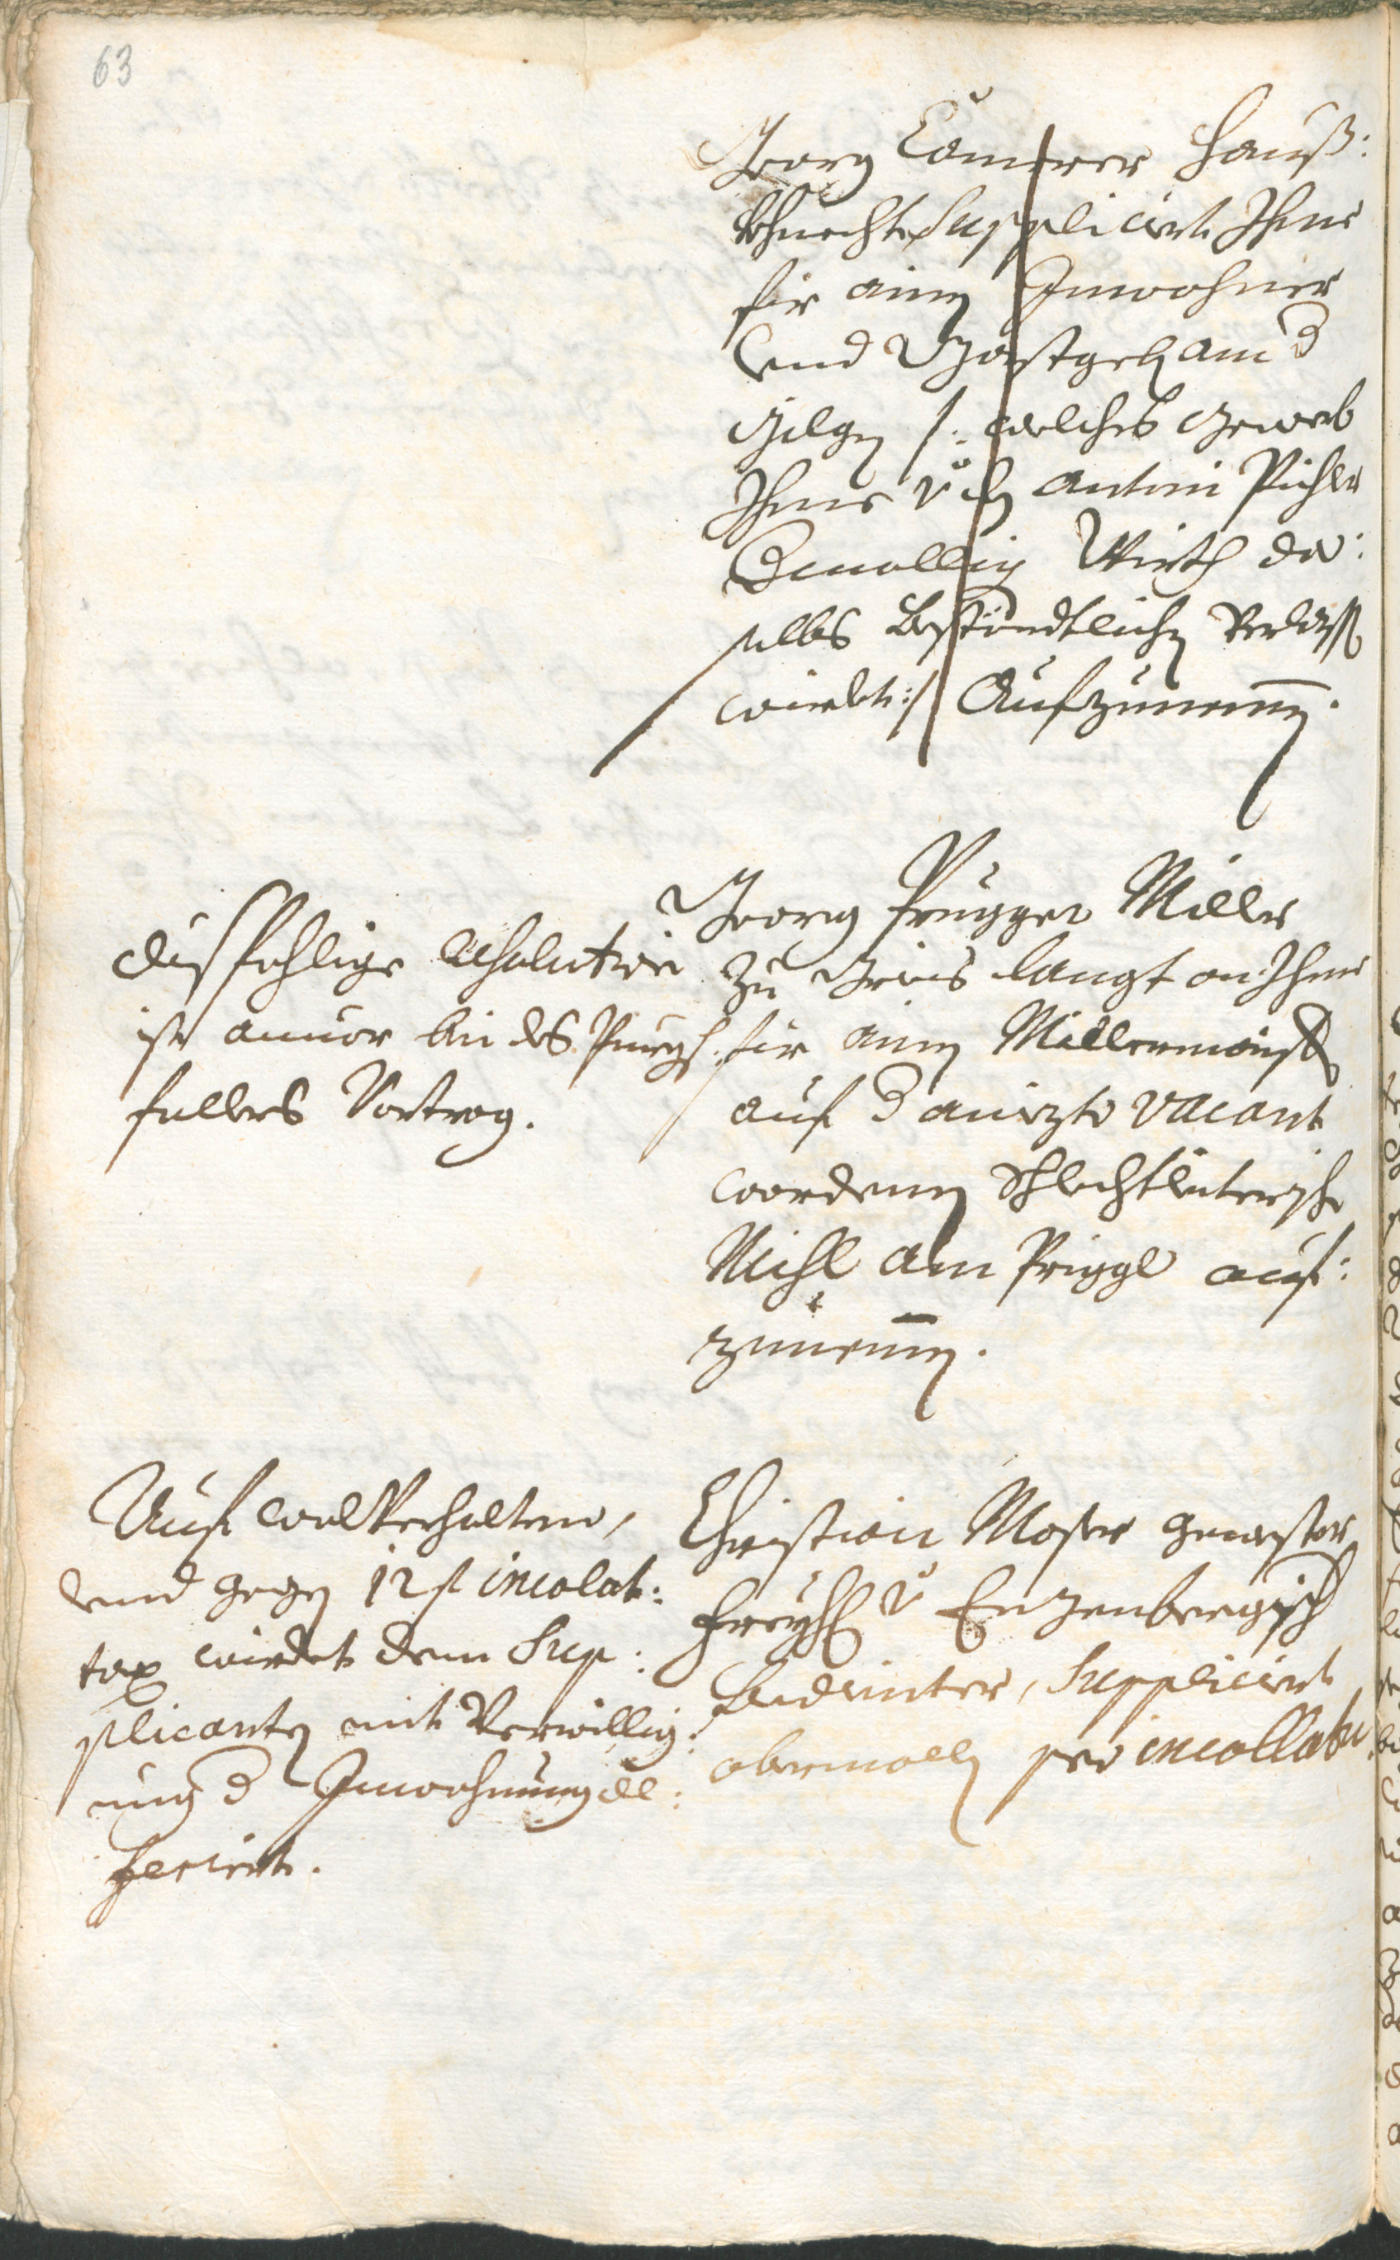 63
Georg Camerer Hauß:
khnecht Supplicirt Ihne
für ainen Inwohner
und Gastgeb am d
Gilgen /: welches Gewerb
Ihme von Antoni Pichler
dermallig Wirth da:
selbs Beständtlichen verlassen
wirdet :/ Aufzunemmen.
Georg Prugger Miller
zu Gries langt an Ihne
für ainen Millermaister
auf d aniezto vacant
wordenen Schlechtleiterische
Mihl am Priggl auf:
zunemmen.
Disfehlige resolution
ist anvor bei des Purgh:
fellers Vortrag.
Christian Moser gewester
Freyh: v Enzenbergisch
Bedienter, Supplicirt
abermallen pro incollatu
Auf wolverhalten,
und gegen 12 f incolat:
tax wirdet dem Sup:
plicanten mit Verwillig:
ung d Inwohnung de:
feriert.